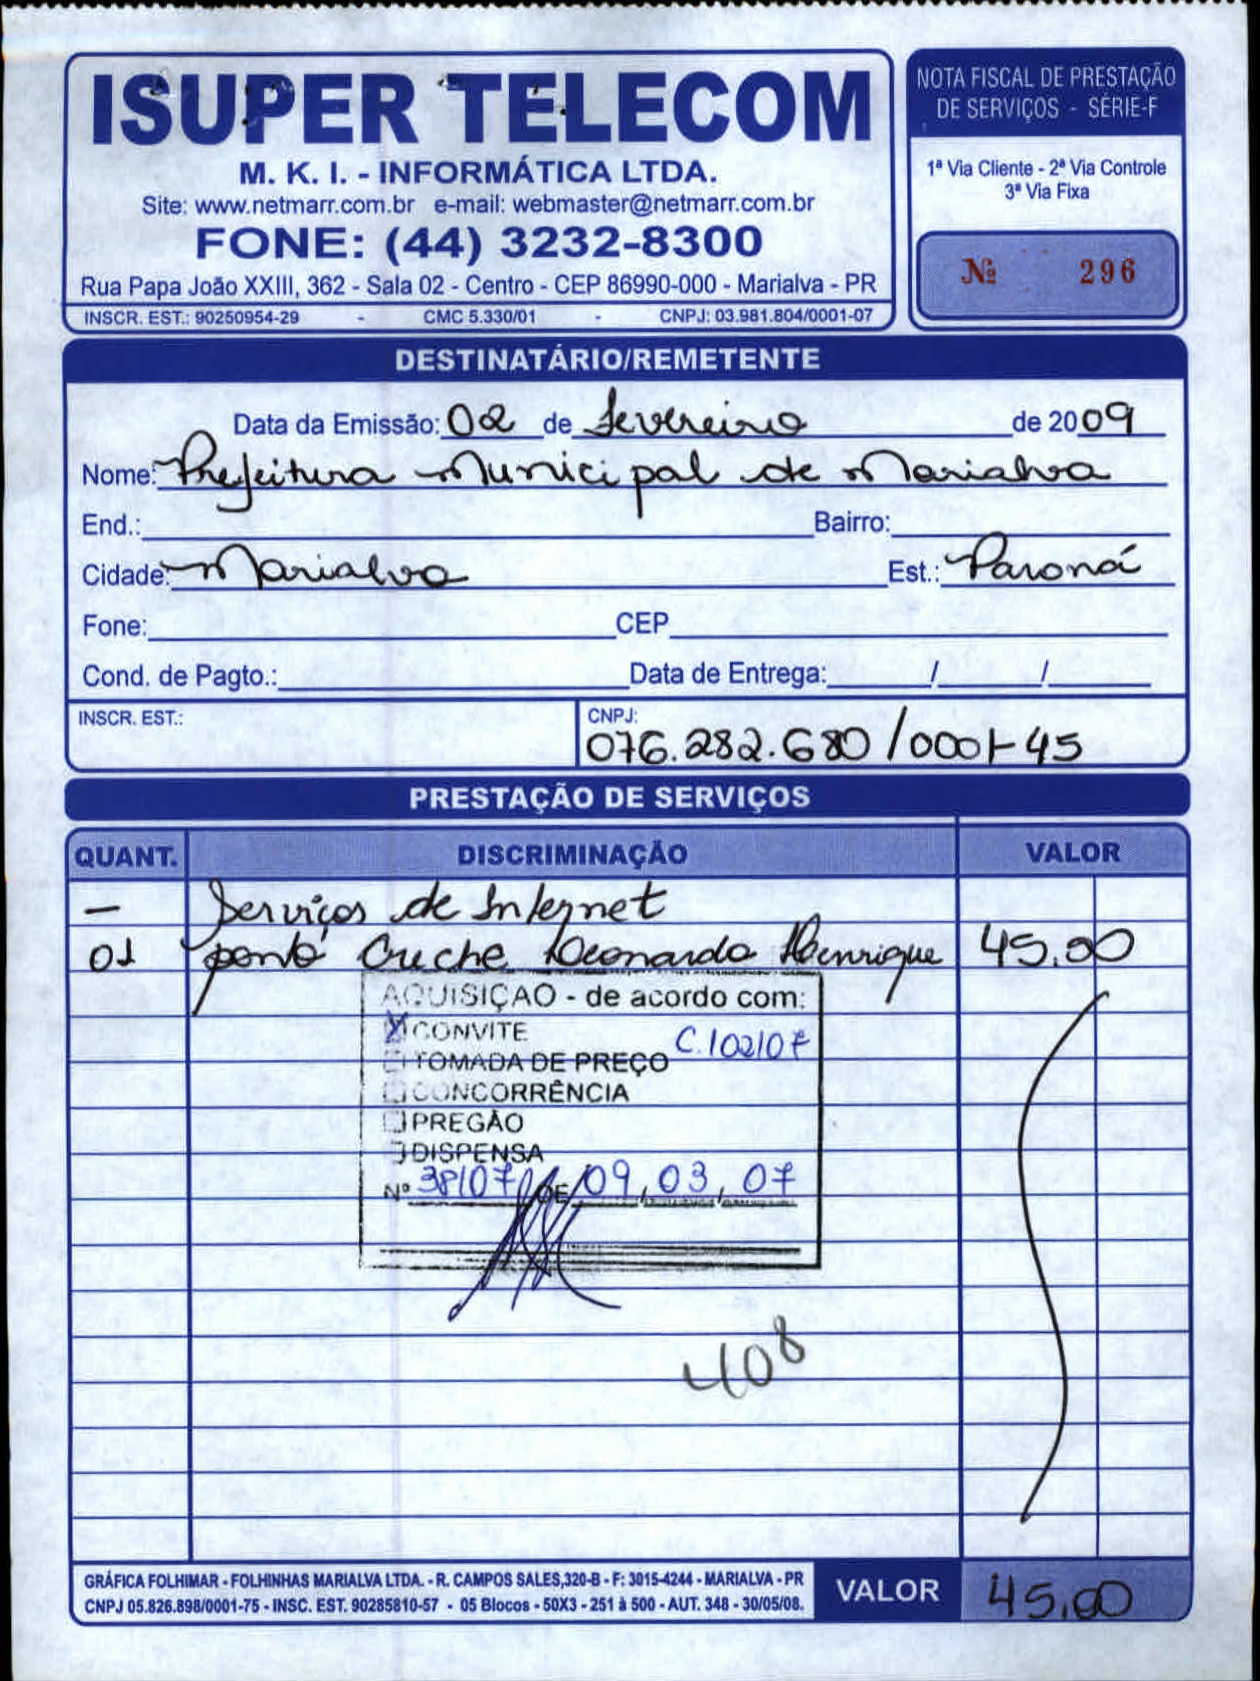 ISUPER TELECOM
M. K. I. - INFORMÁTICA LTDA.
Site: www.netmarr.com.br e-mail: webmaster@netmarr.com.br
FONE: (44) 3232-8300
Rua Papa João XXIII, 362 - Sala 02 - Centro - CEP 86990-000 - Marialva - PR
INSCR. EST.: 90250954-29 - CMC 5.330/01 - CNPJ: 03.981.804/0001-07
NOTA FISCAL DE PRESTAÇÃO
DE SERVIÇOS - SÉRIE-F
1ª Via Cliente - 2ª Via Controle
3ª Via Fixa
Nº 296
DESTINATÁRIO/REMETENTE
Data da Emissão: 02 de fevereiro de 2009
Nome: Prefeitura Municipal de Marialva
End.: Bairro:
Cidade: Marialva Est.: Paraná
Fone: CEP
Cond. de Pagto.: Data de Entrega: / /
INSCR. EST.: CNPJ:
076.282.680/0001-45
PRESTAÇÃO DE SERVIÇOS
QUANT. DISCRIMINAÇÃO VALOR
- Serviços de Internet
01 ponto Creche Leonardo Henrique 45,00
AQUISIÇAO - de acordo com:
X CONVITE C.102/07
TOMADA DE PREÇO
CONCORRÊNCIA
PREGÃO
DISPENSA
Nº 38/07 DE 09, 03, 07
408
GRÁFICA FOLHIMAR - FOLHINHAS MARIALVA LTDA. - R. CAMPOS SALES,320-B - F: 3015-4244 - MARIALVA - PR
CNPJ 05.826.898/0001-75 - INSC. EST. 90285810-57 - 05 Blocos - 50X3 - 251 à 500 - AUT. 348 - 30/05/08.
VALOR 45,00